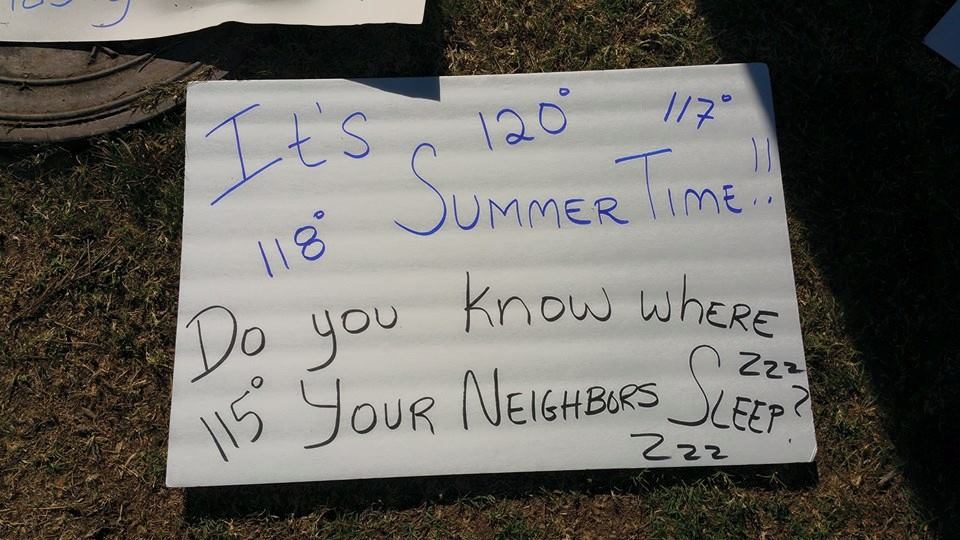 It's 120° 117°
118° SUMMER TIME!!
Do you know where
115° YOUR NEIGHBORS SLEEP?
zzz
zzz